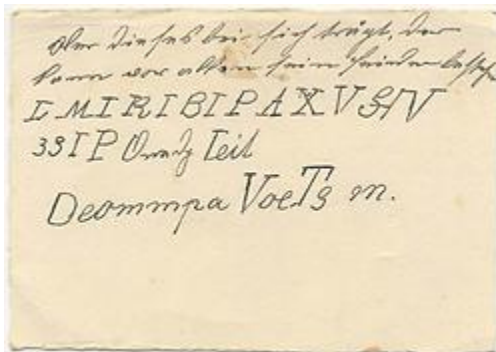 Wer dieses bei sich trägt, der
kann vor allen sein Feinden
I M I R I B I P A X V S IV
33 I P Teil
Deommpa VoeTs m.